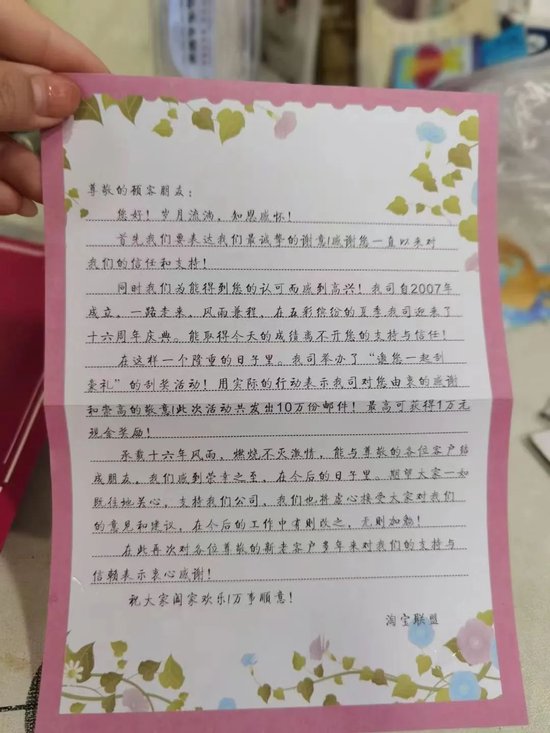 尊敬的顾客朋友：
您好！岁月流淌，知恩感怀！
首先我们要表达我们最诚挚的谢意！感谢您一直以来对
我们的信任和支持！
同时我们为能得到您的认可而感到高兴！我司自2007年
成立，一路走来，风雨兼程，在五彩缤纷的夏季我司迎来了
十六周年庆典。能取得今天的成绩离不开您的支持与信任！
在这样一个隆重的日子里。我司举办了“邀您一起刮
豪礼”的刮奖活动！用实际的行动表示我司对您由衷的感谢
和崇高的敬意！此次活动共发出10万份邮件！最高可获得1万元
现金奖励！
承载十六年风雨、燃烧不灭激情，能与尊敬的各位客户结
成朋友，我们感到荣幸之至、在今后的日子里。期望大家一如
既往地关心，支持我们公司、我们也将虚心接受大家对我们
的意见和建议，在今后的工作中有则改之，无则加勉！
在此再次对各位尊敬的新老客户多年来对我们的支持与
信赖表示衷心感谢！
祝大家阖家欢乐！万事顺意！
淘宝联盟